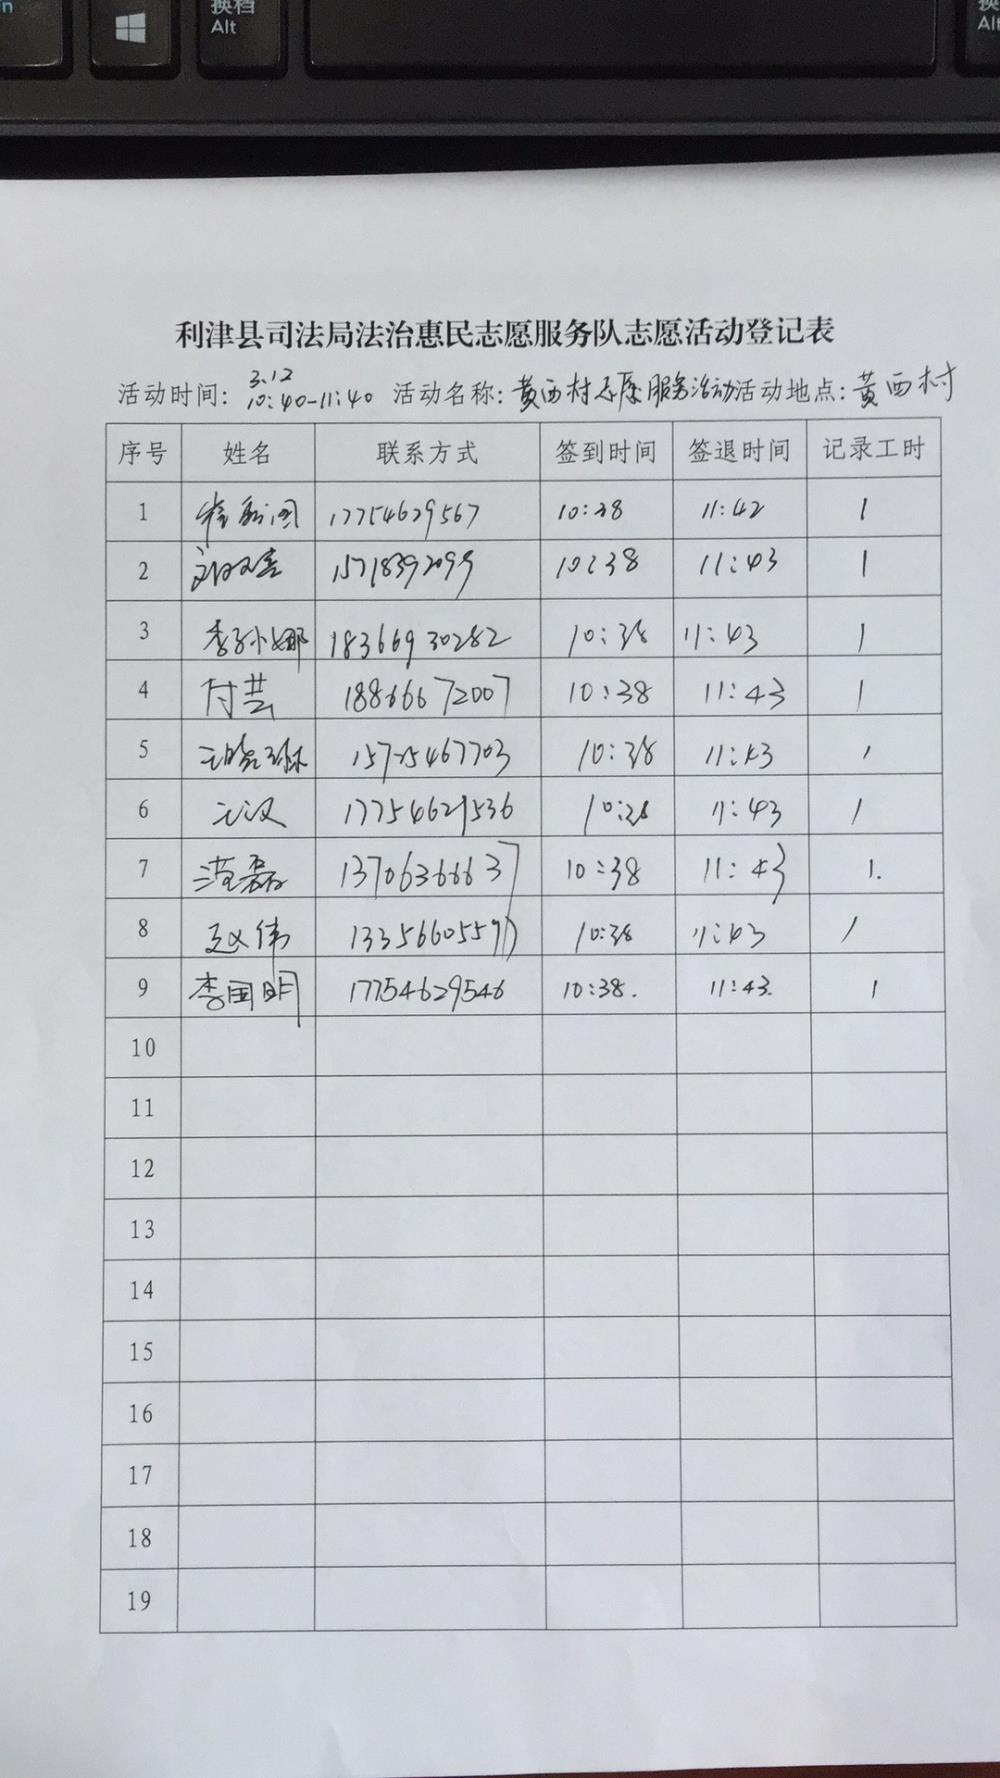 换档
Alt
利津县司法局法治惠民志愿服务队志愿活动登记表
活动时间：3.12 10:40-11:40 活动名称：黄西村志愿服务活动 活动地点：黄西村
序号 姓名 联系方式 签到时间 签退时间 记录工时
1 17754629567 10:38 11:42 1
2 10:38 11:43 1
3 18366930282 10:38 11:43 1
4 付芸 18866672007 10:38 11:43 1
5 10:38 11:43 1
6 王汉 17754629536 10:38 11:43 1
7 范磊 13706366637 10:38 11:43 1.
8 赵伟 10:38 11:43 1
9 李国明 17754629546 10:38. 11:43. 1
10
11
12
13
14
15
16
17
18
19